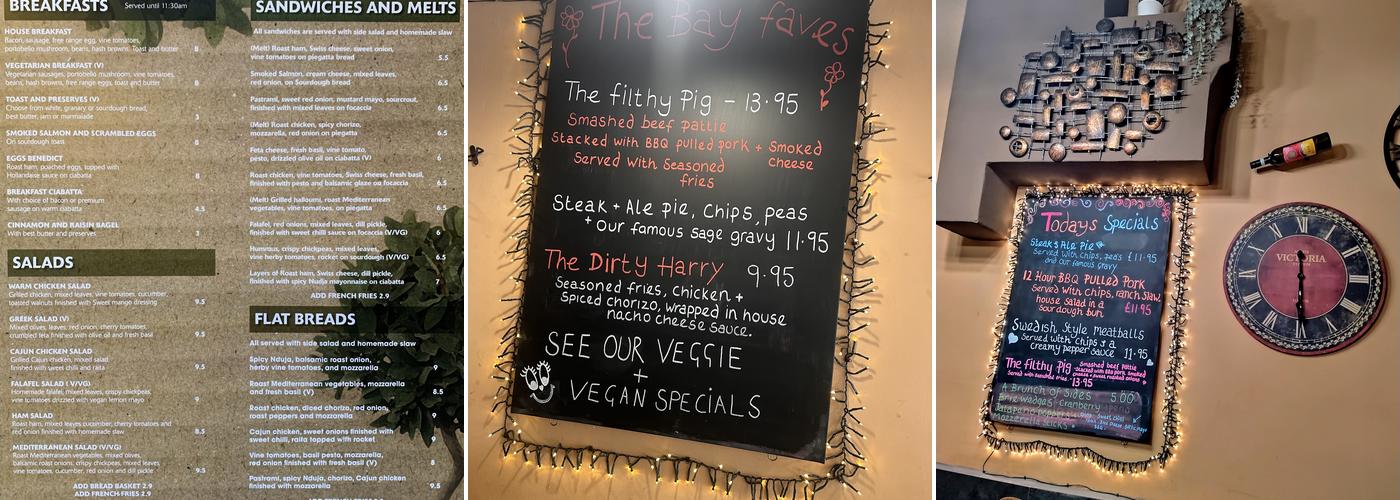 BREAKFASTS Served until 11:30am
HOUSE BREAKFAST
Bacon, sausage, free range egg, vine tomatoes,
portobello mushroom, beans, hash browns. Toast and butter 8
VEGETARIAN BREAKFAST (V)
Vegetarian sausages, portobello mushroom, vine tomatoes,
beans, hash browns, free range eggs, toast and butter 8
TOAST AND PRESERVES (V)
Choose from white, granary or sourdough bread,
best butter, jam or marmalade 3
SMOKED SALMON AND SCRAMBLED EGGS
On sourdough toast 8
EGGS BENEDICT
Roast ham, poached eggs, topped with
Hollandaise sauce on ciabatta 8
BREAKFAST CIABATTA
With choice of bacon or premium
sausage on warm ciabatta 4.5
CINNAMON AND RAISIN BAGEL
With best butter and preserves 3
SALADS
WARM CHICKEN SALAD
Grilled chicken, mixed leaves, vine tomatoes, cucumber,
toasted walnuts finished with Sweet mango dressing 9.5
GREEK SALAD (V)
Mixed olives, leaves, red onion, cherry tomatoes,
crumbled feta finished with olive oil and fresh basil 9.5
CAJUN CHICKEN SALAD
Grilled Cajun chicken, mixed salad
finished with sweet chilli and raita 9.5
FALAFEL SALAD ( V/VG)
Homemade falafel, mixed leaves, crispy chickpeas,
vine tomatoes drizzled with vegan lemon mayo 9
HAM SALAD
Roast ham, mixed leaves cucumber, cherry tomatoes and
red onion finished with homemade slaw 8.5
MEDITERRANEAN SALAD (V/VG)
Roast Mediterranean vegetables, mixed olives,
balsamic roast onions, crispy chickpeas, mixed leaves
vine tomatoes, cucumber, red onion and dill pickle 9.5
ADD BREAD BASKET 2.9
ADD FRENCH FRIES 2.9
SANDWICHES AND MELTS
All sandwiches are served with side salad and homemade slaw
(Melt) Roast ham, Swiss cheese, sweet onion,
vine tomatoes on piegatta bread 5.5
Smoked Salmon, cream cheese, mixed leaves,
red onion, on Sourdough bread 6.5
Pastrami, sweet red onion, mustard mayo, sourcrout,
finished with mixed leaves on focaccia 6.5
(Melt) Roast chicken, spicy chorizo,
mozzarella, red onion on piegatta 6.5
Feta cheese, fresh basil, vine tomato,
pesto, drizzled olive oil on ciabatta (V) 6
Roast chicken, vine tomatoes, Swiss cheese, fresh basil,
finished with pesto and balsamic glaze on focaccia 6.5
(Melt) Grilled halloumi, roast Mediterranean
vegetables, vine tomatoes, on piegatta 6.5
Falafel, red onion, mixed leaves, dill pickle,
finished with sweet chilli sauce on focaccia (V/VG) 6
Humous, crispy chickpeas, mixed leaves,
vine herby tomatoes, rocket on sourdough (V/VG) 6.5
Layers of Roast ham, Swiss cheese, dill pickle,
finished with spicy Nudja mayonnaise on ciabatta 7
ADD FRENCH FRIES 2.9
FLAT BREADS
All served with side salad and homemade slaw
Spicy Nduja, balsamic roast onion,
herby vine tomatoes, and mozzarella 9
Roast Mediterranean vegetables, mozzarella
and fresh basil (V) 8.5
Roast chicken, diced chorizo, red onion,
roast peppers and mozzarella 9
Cajun chicken, sweet onions finished with
sweet chilli, raita topped with rocket 9
Vine tomatoes, basil pesto, mozzarella,
red onion finished with fresh basil (V) 8
Pastrami, spicy Nduja, chorizo, Cajun chicken
finished with mozzarella 9.5
The Bay faves
The filthy Pig - 13.95
Smashed beef pattie
Stacked with BBQ pulled pork + Smoked
cheese
Served with Seasoned
fries
Steak + Ale Pie, Chips, peas
+ our famous sage gravy 11.95
The Dirty Harry 9.95
Seasoned fries, chicken +
Spiced chorizo, wrapped in house
nacho cheese sauce.
SEE OUR VEGGIE
+
VEGAN SPECIALS
Todays Specials
Steak & Ale Pie
Served with chips, peas £11.95
and our famous gravy
12 Hour BBQ Pulled Pork
Served with Chips, ranch slaw,
house salad in a
sourdough bun £11.95
Swedish Style meatballs
Served with Chips & a
creamy pepper sauce 11.95
The filthy Pig Smashed beef pattie
Stacked with bbq pork, smoked
Served with Seasoned fries 13.95
A Brunch of Sides 5.00
Brie wedges - Cranberry
Jalapano poppers
Mozzerella sticks
VICTORIA